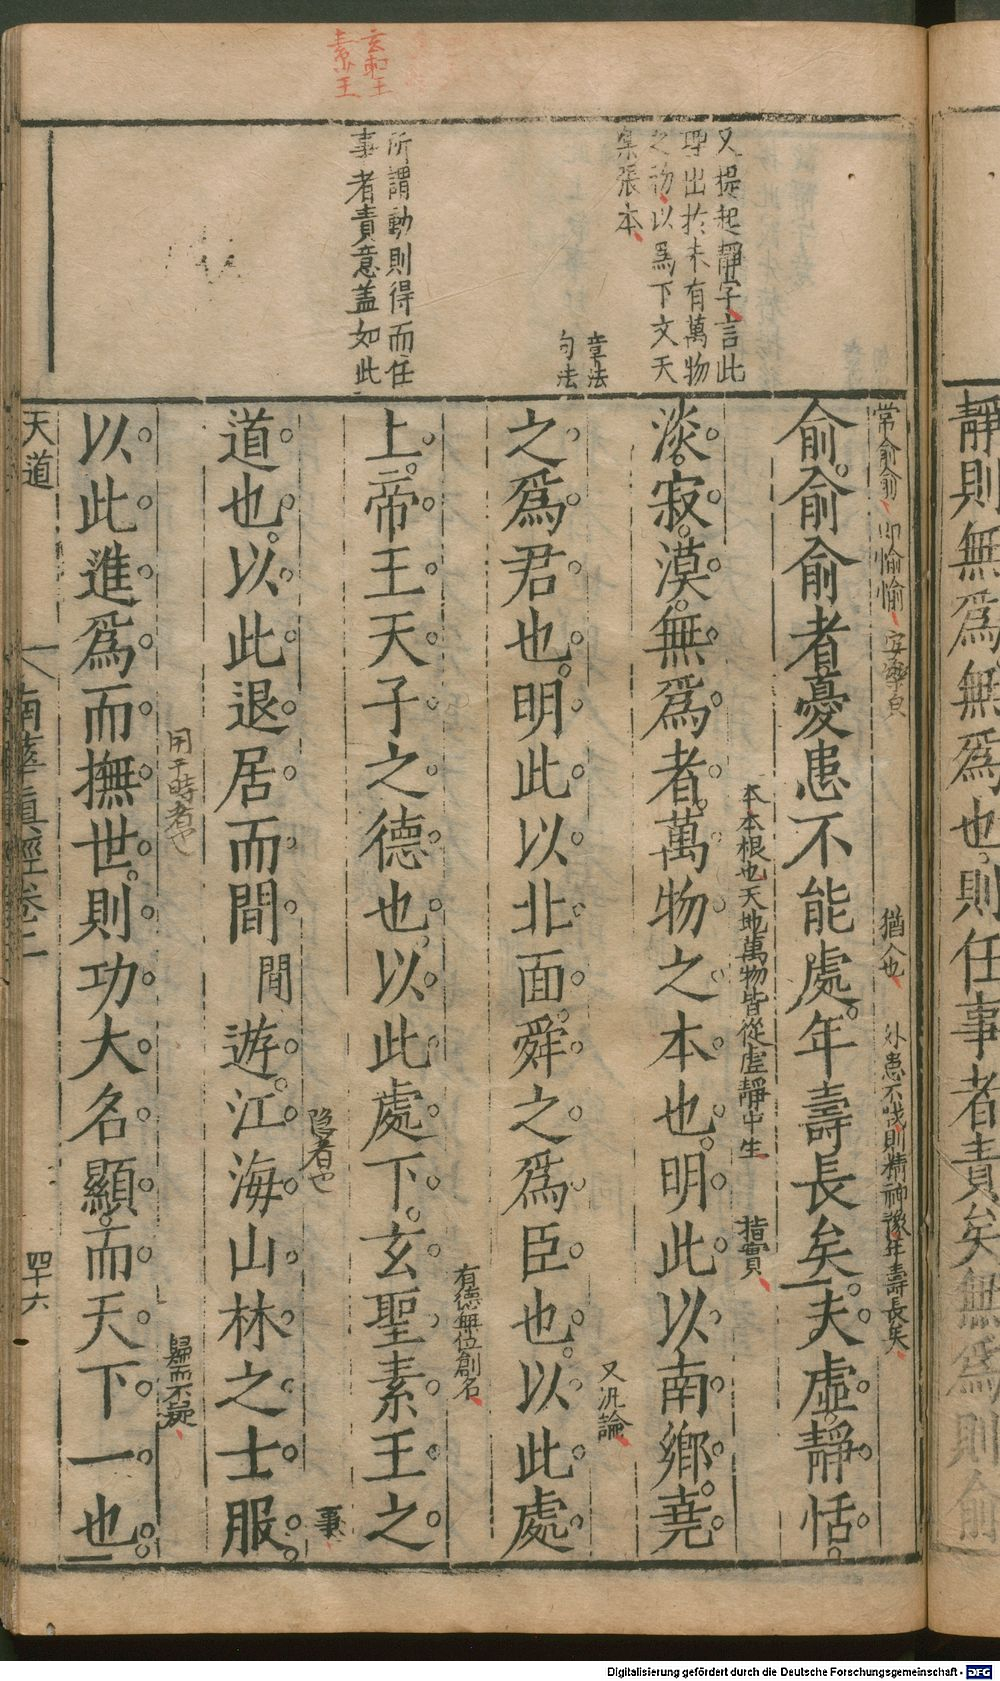 玄聖
素王
又提起靜字言此
理出於未有萬物
之初以為下文天
樂張本
章法
句法
所謂動則得而任
事者責意蓋如此
靜則無為無為也則任事者責矣無為則俞
常俞俞即愉愉安寧皃
猶入也
外患不戕則精神豫年壽長矣
俞俞俞者憂患不能處年壽長矣夫虛靜恬
本本根也天地萬物皆從虛靜中生
指實
淡寂漠無為者萬物之本也明此以南鄉堯
又汎論
之為君也明此以北面舜之為臣也以此處
有德無位創名
上帝王天子之德也以此處下玄聖素王之
隐者也
事
道也以此退居而間 閒 遊江海山林之士服
用于時者也
歸而不疑
以此進為而撫世則功大名顯而天下一也
天道 南華真經卷二 四十六
Digitalisierung gefördert durch die Deutsche Forschungsgemeinschaft - DFG